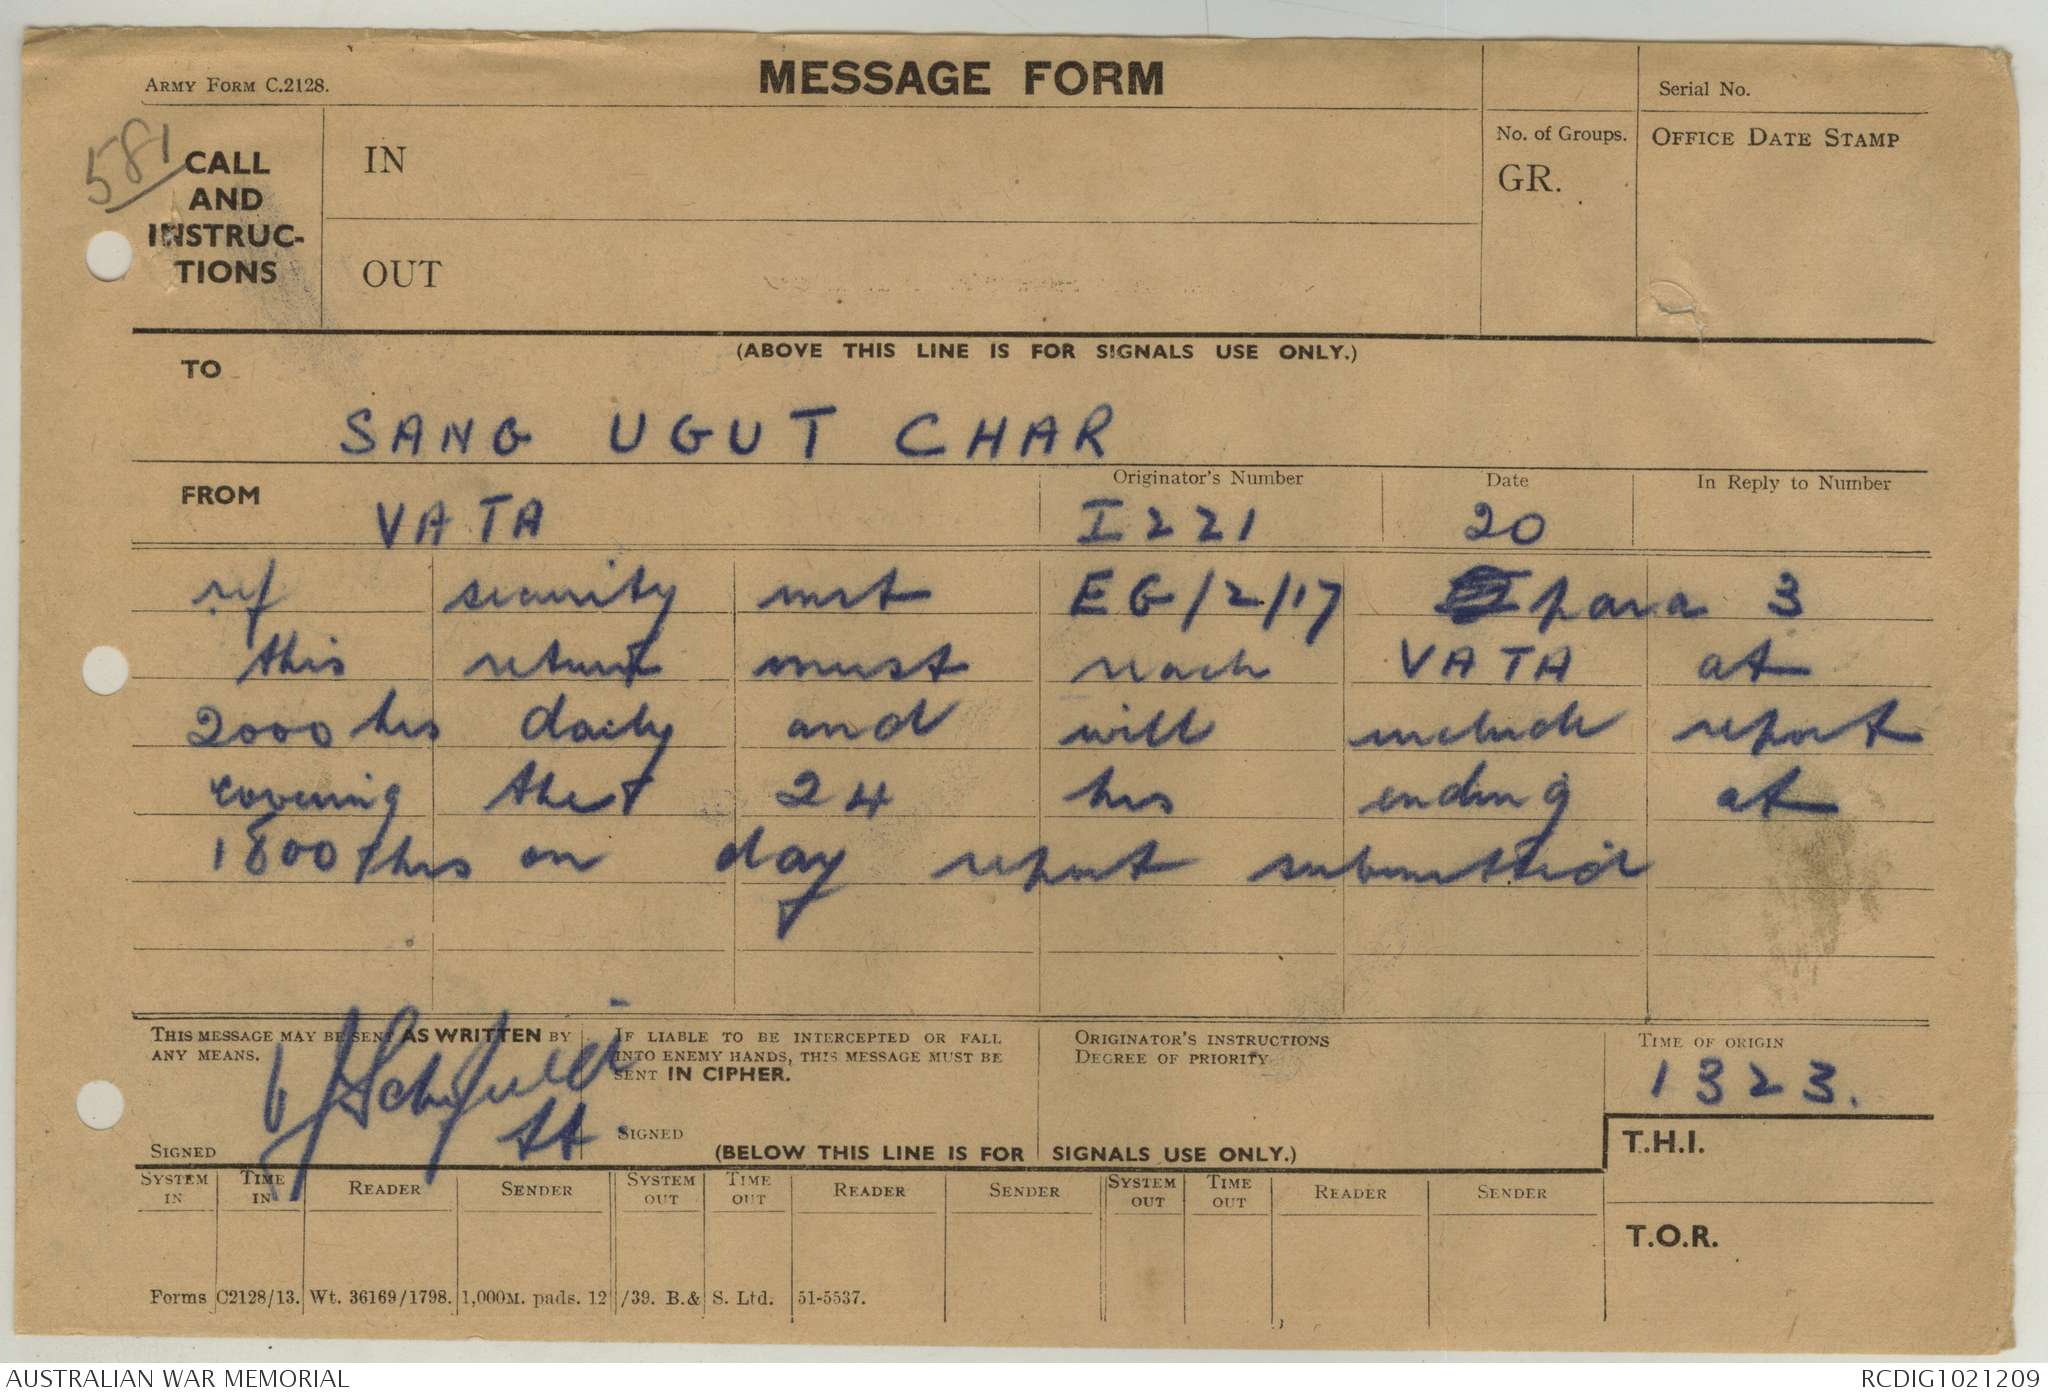 ARMY FORM C.2128.
MESSAGE FORM
Serial No.
581
CALL AND INSTRUC-TIONS
IN
OUT
No. of Groups.
GR.
OFFICE DATE STAMP
(ABOVE THIS LINE IS FOR SIGNALS USE ONLY.)
TO
SANG UGUT CHAR
FROM
VATA
Originator's Number
I 221
Date
20
In Reply to Number
ref security inst EG/2/17 para 3
this return must reach VATA at
2000 hrs daily and will include report
covering the 24 hrs ending at
1800 hrs on day report submitted
THIS MESSAGE MAY BE SENT AS WRITTEN BY
ANY MEANS.
SIGNED
IF LIABLE TO BE INTERCEPTED OR FALL
INTO ENEMY HANDS, THIS MESSAGE MUST BE
SENT IN CIPHER.
SIGNED
ORIGINATOR'S INSTRUCTIONS
DEGREE OF PRIORITY
TIME OF ORIGIN
1323.
(BELOW THIS LINE IS FOR SIGNALS USE ONLY.)
T.H.I.
T.O.R.
SYSTEM IN
TIME IN
READER
SENDER
SYSTEM OUT
TIME OUT
READER
SENDER
SYSTEM OUT
TIME OUT
READER
SENDER
Forms C2128/13. Wt. 36169/1798. 1,000M. pads. 12/39. B.& S. Ltd. 51-5537.
AUSTRALIAN WAR MEMORIAL
RCDIG1021209